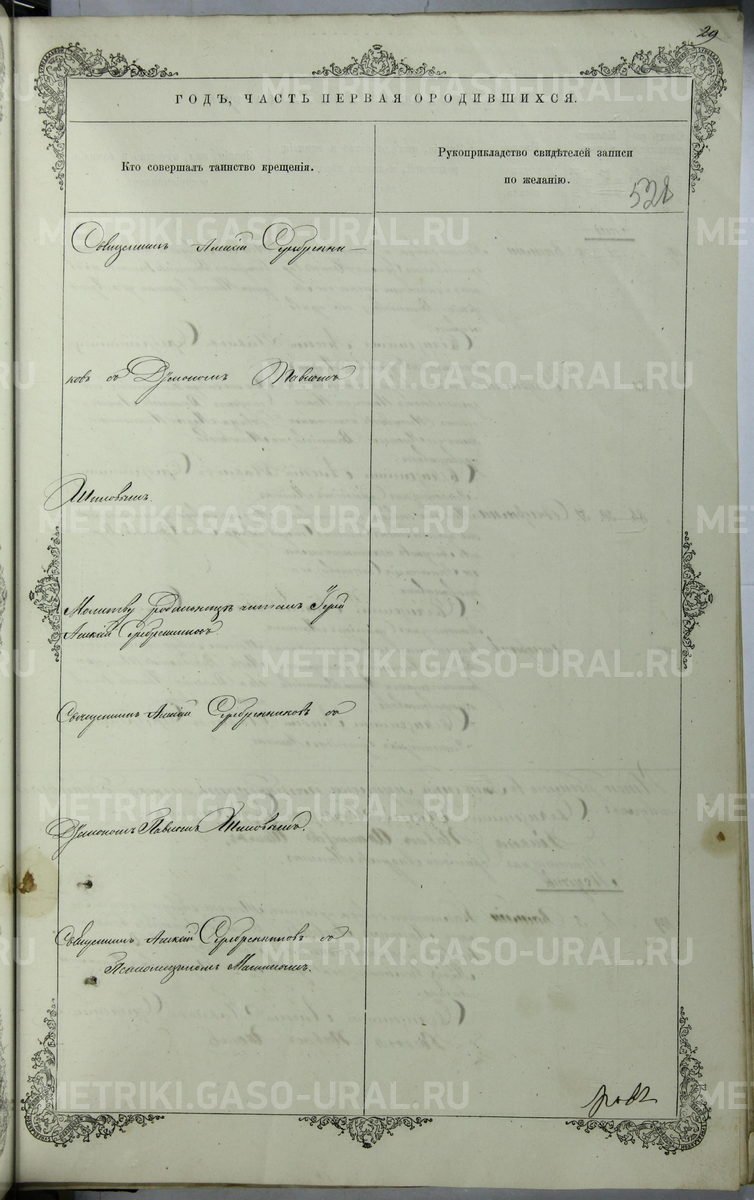 29
ГОДЪ, ЧАСТЬ ПЕРВАЯ О РОДИВШИХСЯ.
Кто совершалъ таинство крещенія.
Рукоприкладство свидѣтелей записи
по желанію.
528
Священникъ Алексій Серебренни-
ковъ съ Діакономъ Павломъ
Шиловымъ.
Молитву читалъ Іерей
Алексій Серебренниковъ
Священникъ Алексій Серебренниковъ съ
Діакономъ Павломъ Шиловымъ.
Священникъ Алексій Серебренниковъ съ
Псаломщикомъ
METRIKI.GASO-URAL.RU